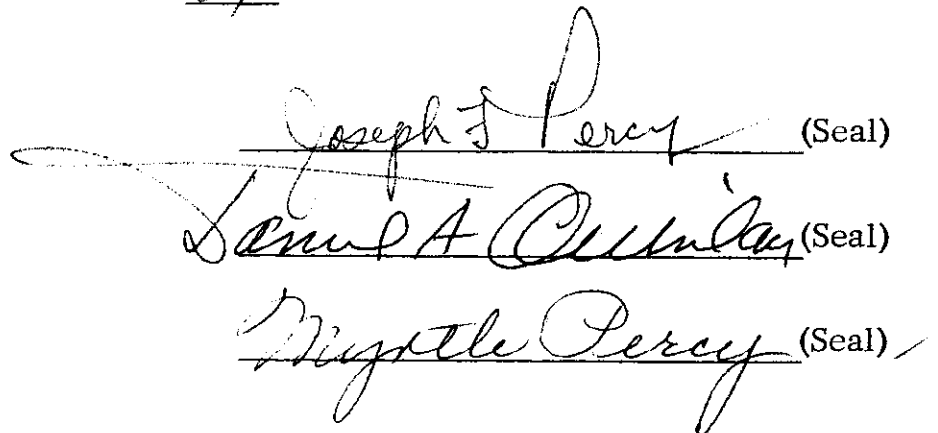 Joseph F Percy (Seal)
Daniel A Quinlan (Seal)
Myrtle Percy (Seal)